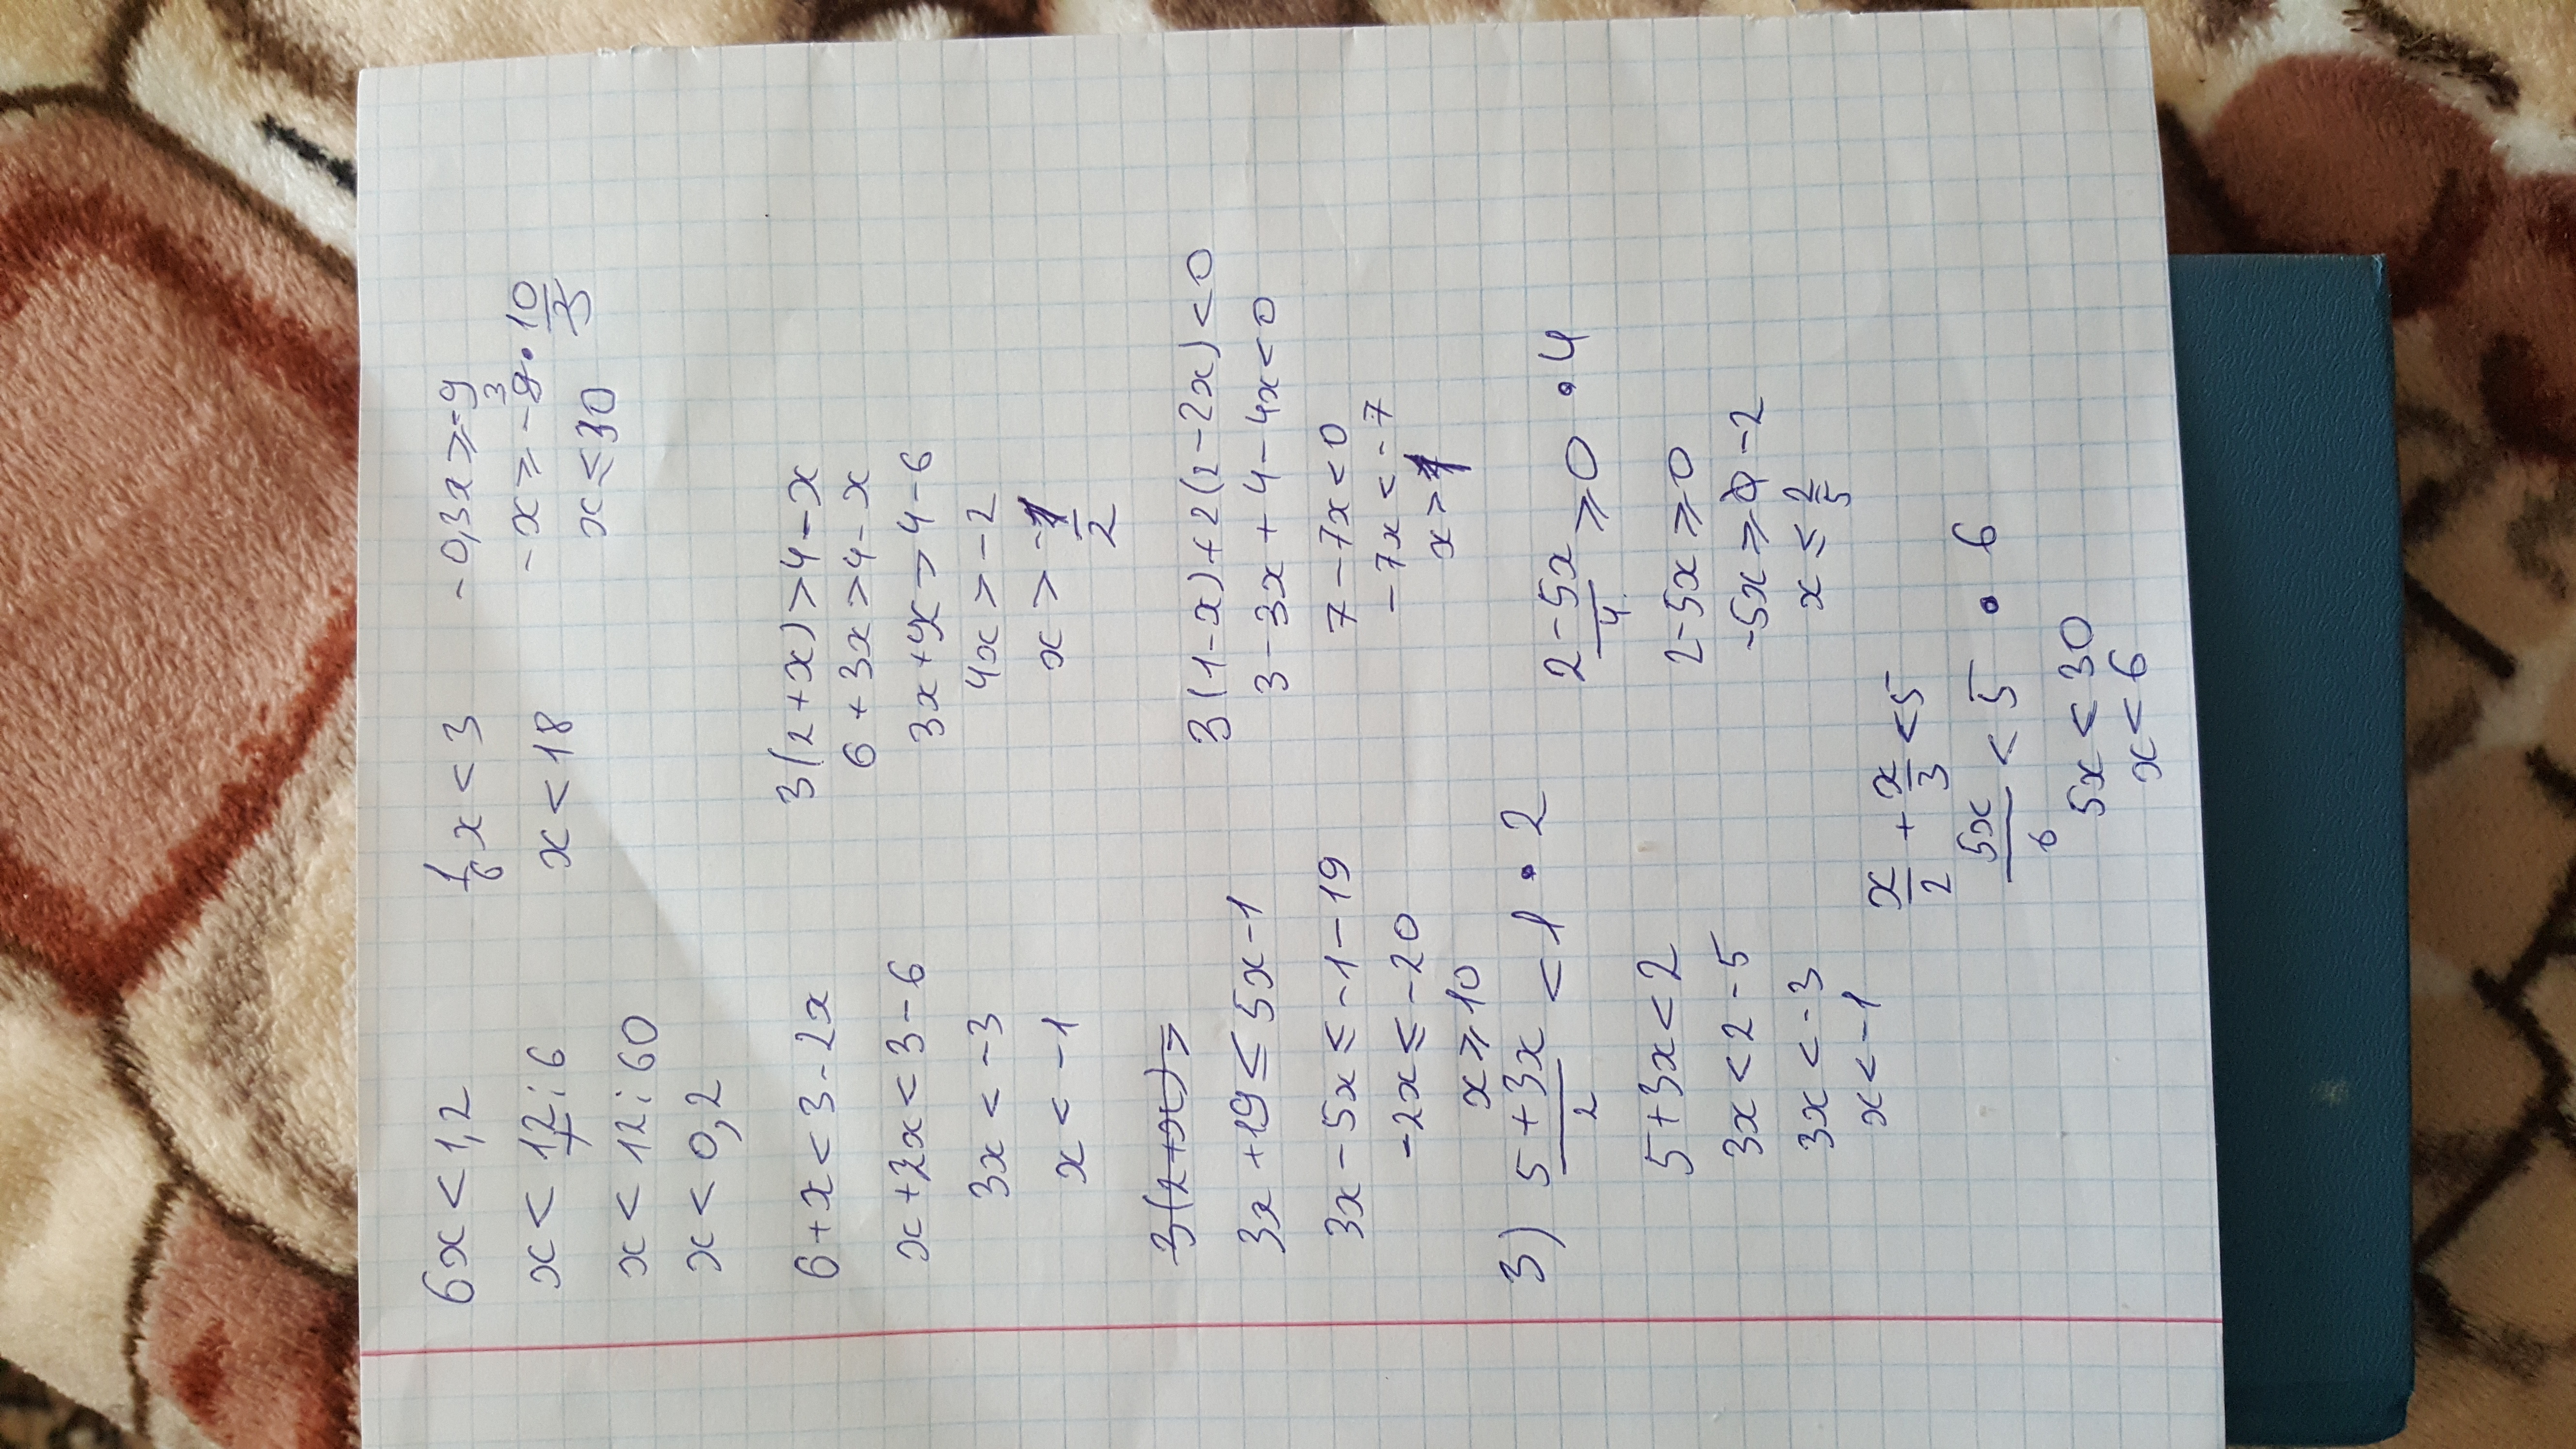 6x < 1,2
x < 12 : 6
x < 12 : 60
x < 0,2
1/6 x < 3
x < 18
-0,3x ⩾ -9
-x ⩾ -9 3 · 10/3
x ⩽ 30
6 + x < 3 - 2x
x + 2x < 3 - 6
3x < -3
x < -1
3(2 + x) > 4 - x
6 + 3x > 4 - x
3x + 4x > 4 - 6
4x > -2
x > -1/2
3(2+x) >
3x + 19 ⩽ 5x - 1
3x - 5x ⩽ -1 - 19
-2x ⩽ -20
x ⩾ 10
3(1 - x) + 2(2 - 2x) < 0
3 - 3x + 4 - 4x < 0
7 - 7x < 0
-7x < -7
x > 1
3) 5 + 3x / 2 < 1 · 2
5 + 3x < 2
3x < 2 - 5
3x < -3
x < -1
2 - 5x / 4 ⩾ 0 · 4
2 - 5x ⩾ 0
-5x ⩾ 0 - 2
x ⩽ 2/5
x/2 + x/3 < 5
5x/6 < 5 · 6
5x < 30
x < 6